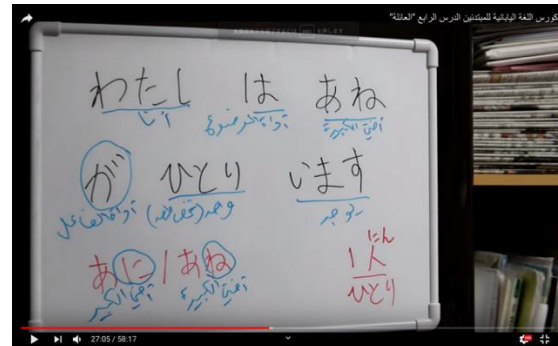 كورس اللغة اليابانية للمبتدئين الدرس الرابع "العائلة"
わたし は あね
أنا أداة الموضوع أختي الكبيرة
が ひとり います
أداة الفاعل يوجد
あに / あね
أخي الكبير أختي الكبيرة
にん
1人
ひとり
27:05 / 58:17